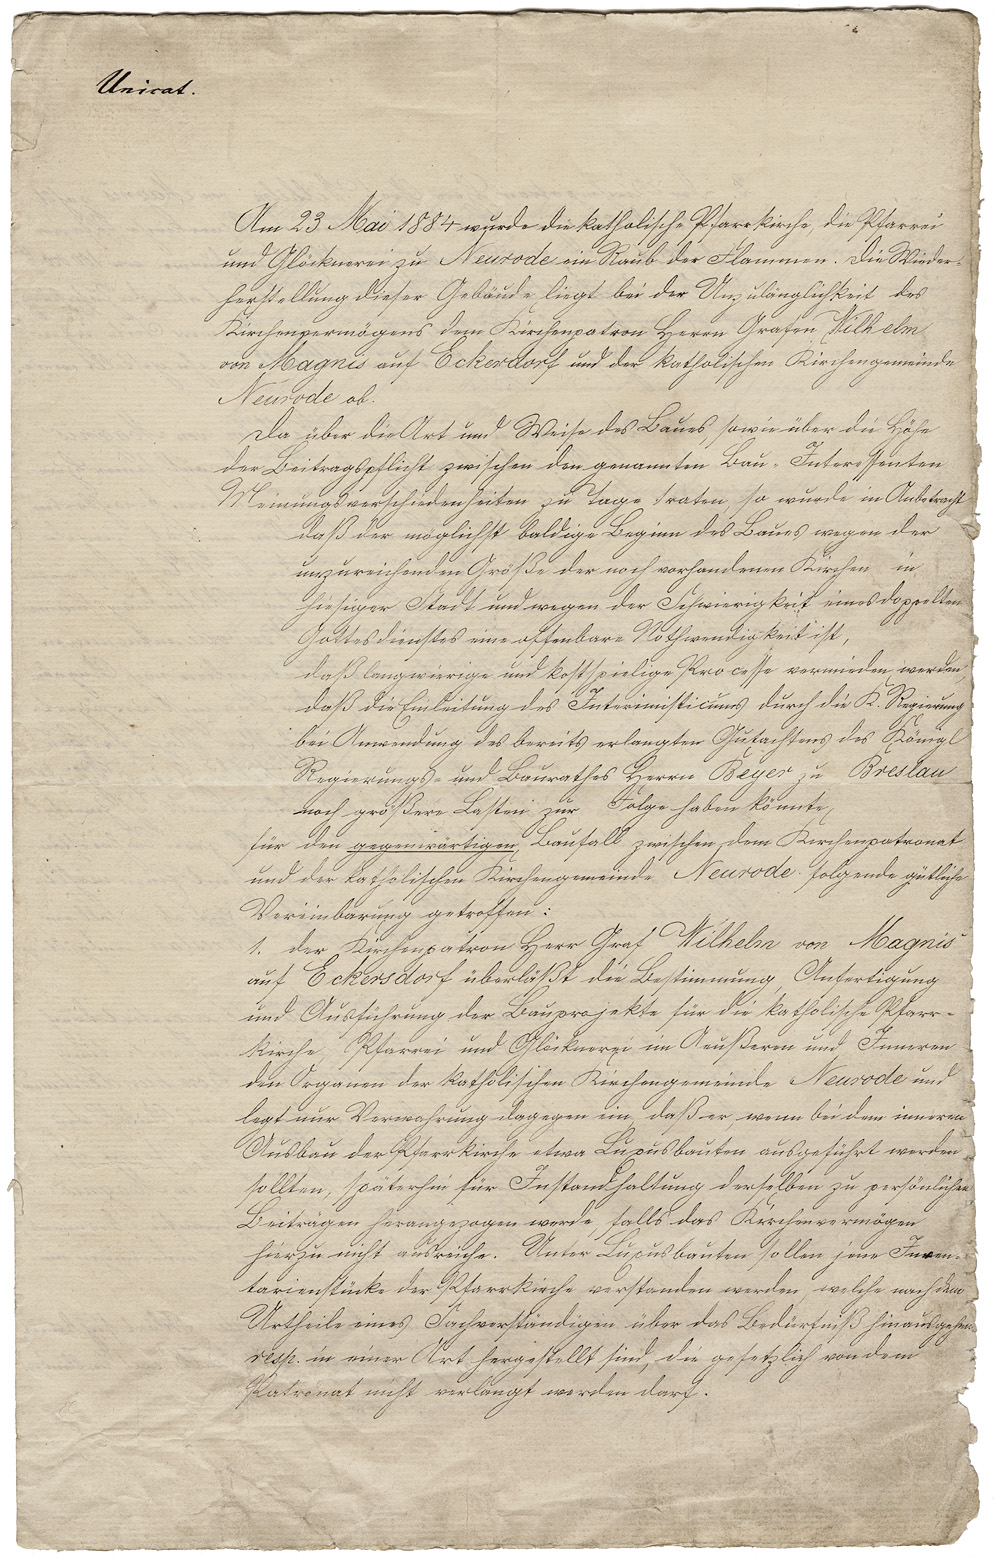 Unicat.
Am 23 Mai 1884 wurde die katholische Pfarrkirche, die Pfarrei
und Glöcknerei zu Neurode ein Raub der Flammen. Die Wieder-
herstellung dieser Gebäude liegt bei der Unzulänglichkeit des
Kirchenvermögens dem Kirchenpatron Herrn Grafen Wilhelm
von Magnis auf Eckersdorf und der katholischen Kirchengemeinde
Neurode ob.
Da über die Art und Weise des Baues, sowie über die Höhe
der Beitragspflicht zwischen den genannten Bau-Interessenten
Meinungsverschiedenheiten zu Tage traten, so wurde in Anbetracht
daß der möglichst baldige Beginn des Baues wegen der
unzureichenden Größe der noch vorhandenen Kirchen in
hiesiger Stadt und wegen der Schwierigkeit eines doppelten
Gottesdienstes eine offenbare Nothwendigkeit ist,
daß langwierige und kostspielige Processe vermieden werden,
daß die Einleitung des Interimisticums durch die K. Regierung
bei Anwendung des bereits erlangten Gutachtens des Königl
Regierungs- und Baurathes Herrn Beyer zu Breslau
noch größere Lasten zur Folge haben könnte,
für den gegenwärtigen Baufall zwischen dem Kirchenpatronat
und der katholischen Kirchengemeinde Neurode folgende gütliche
Vereinbarung getroffen:
1. der Kirchenpatron Herr Graf Wilhelm von Magnis
auf Eckersdorf überläßt die Bestimmung, Anfertigung
und Ausführung der Bauprojekte für die katholische Pfarr-
kirche, Pfarrei und Glöcknerei im Aeußeren und Inneren
den Organen der katholischen Kirchengemeinde Neurode und
legt nur Verwahrung dagegen ein, daß er, wenn bei dem inneren
Ausbau der Pfarrkirche etwa Luxusbauten ausgeführt werden
sollten, späterhin für Instandhaltung derselben zu persönlichen
Beiträgen herangezogen werde, falls das Kirchenvermögen
hierzu nicht ausreiche. Unter Luxusbauten sollen jene Inven-
tarienstücke der Pfarrkirche verstanden werden, welche nach dem
Urtheile eines Sachverständigen über das Bedürfniß hinausgehen
resp. in einer Art hergestellt sind, die gesetzlich von dem
Patronat nicht verlangt werden darf.